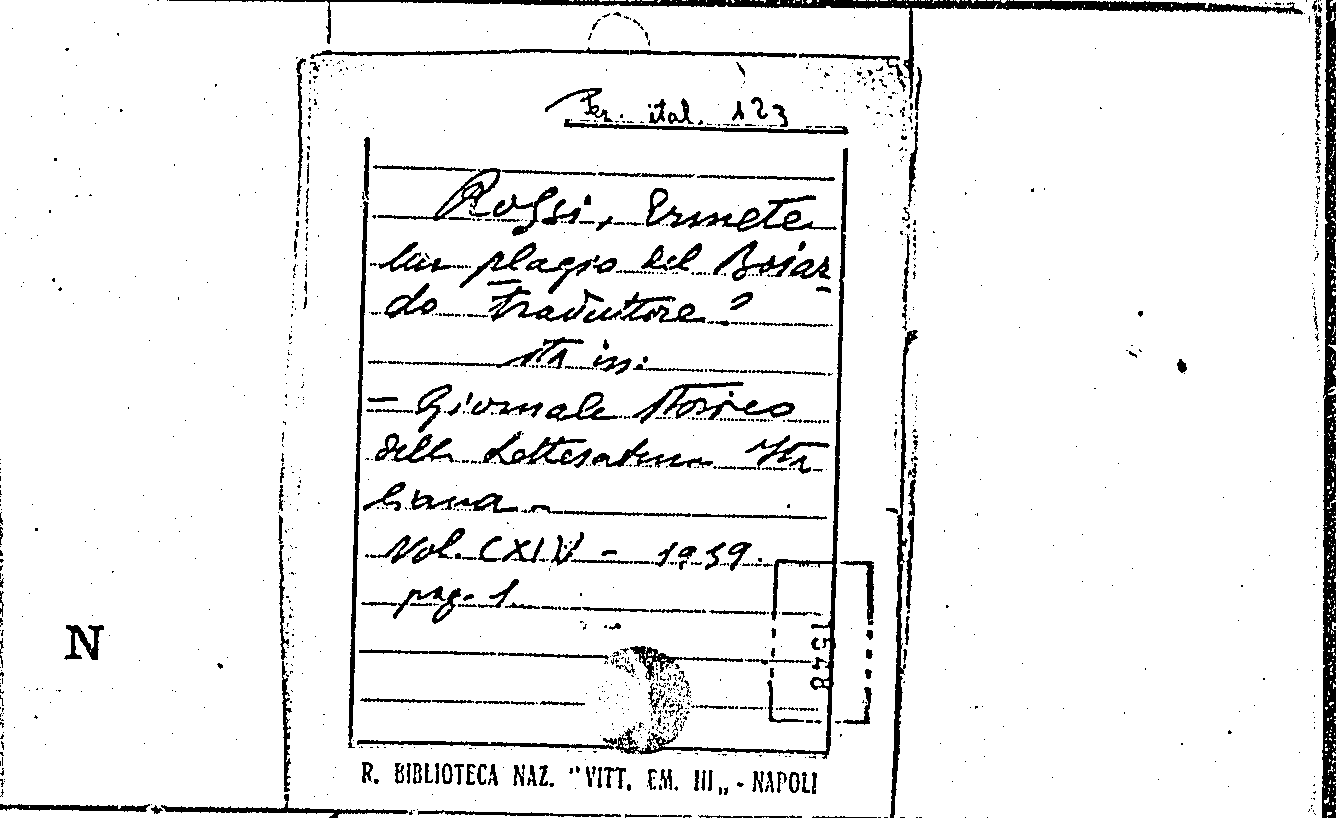 Per. ital. 123
Rossi, Ermete
Un plagio del Boiar
do traduttore?
Sta in:
- Giornale storico
della Letteratura Ita
liana -
Vol. CXIV - 1939.
pag. 1.
1548
N
R. BIBLIOTECA NAZ. "VITT. EM. III„ - NAPOLI